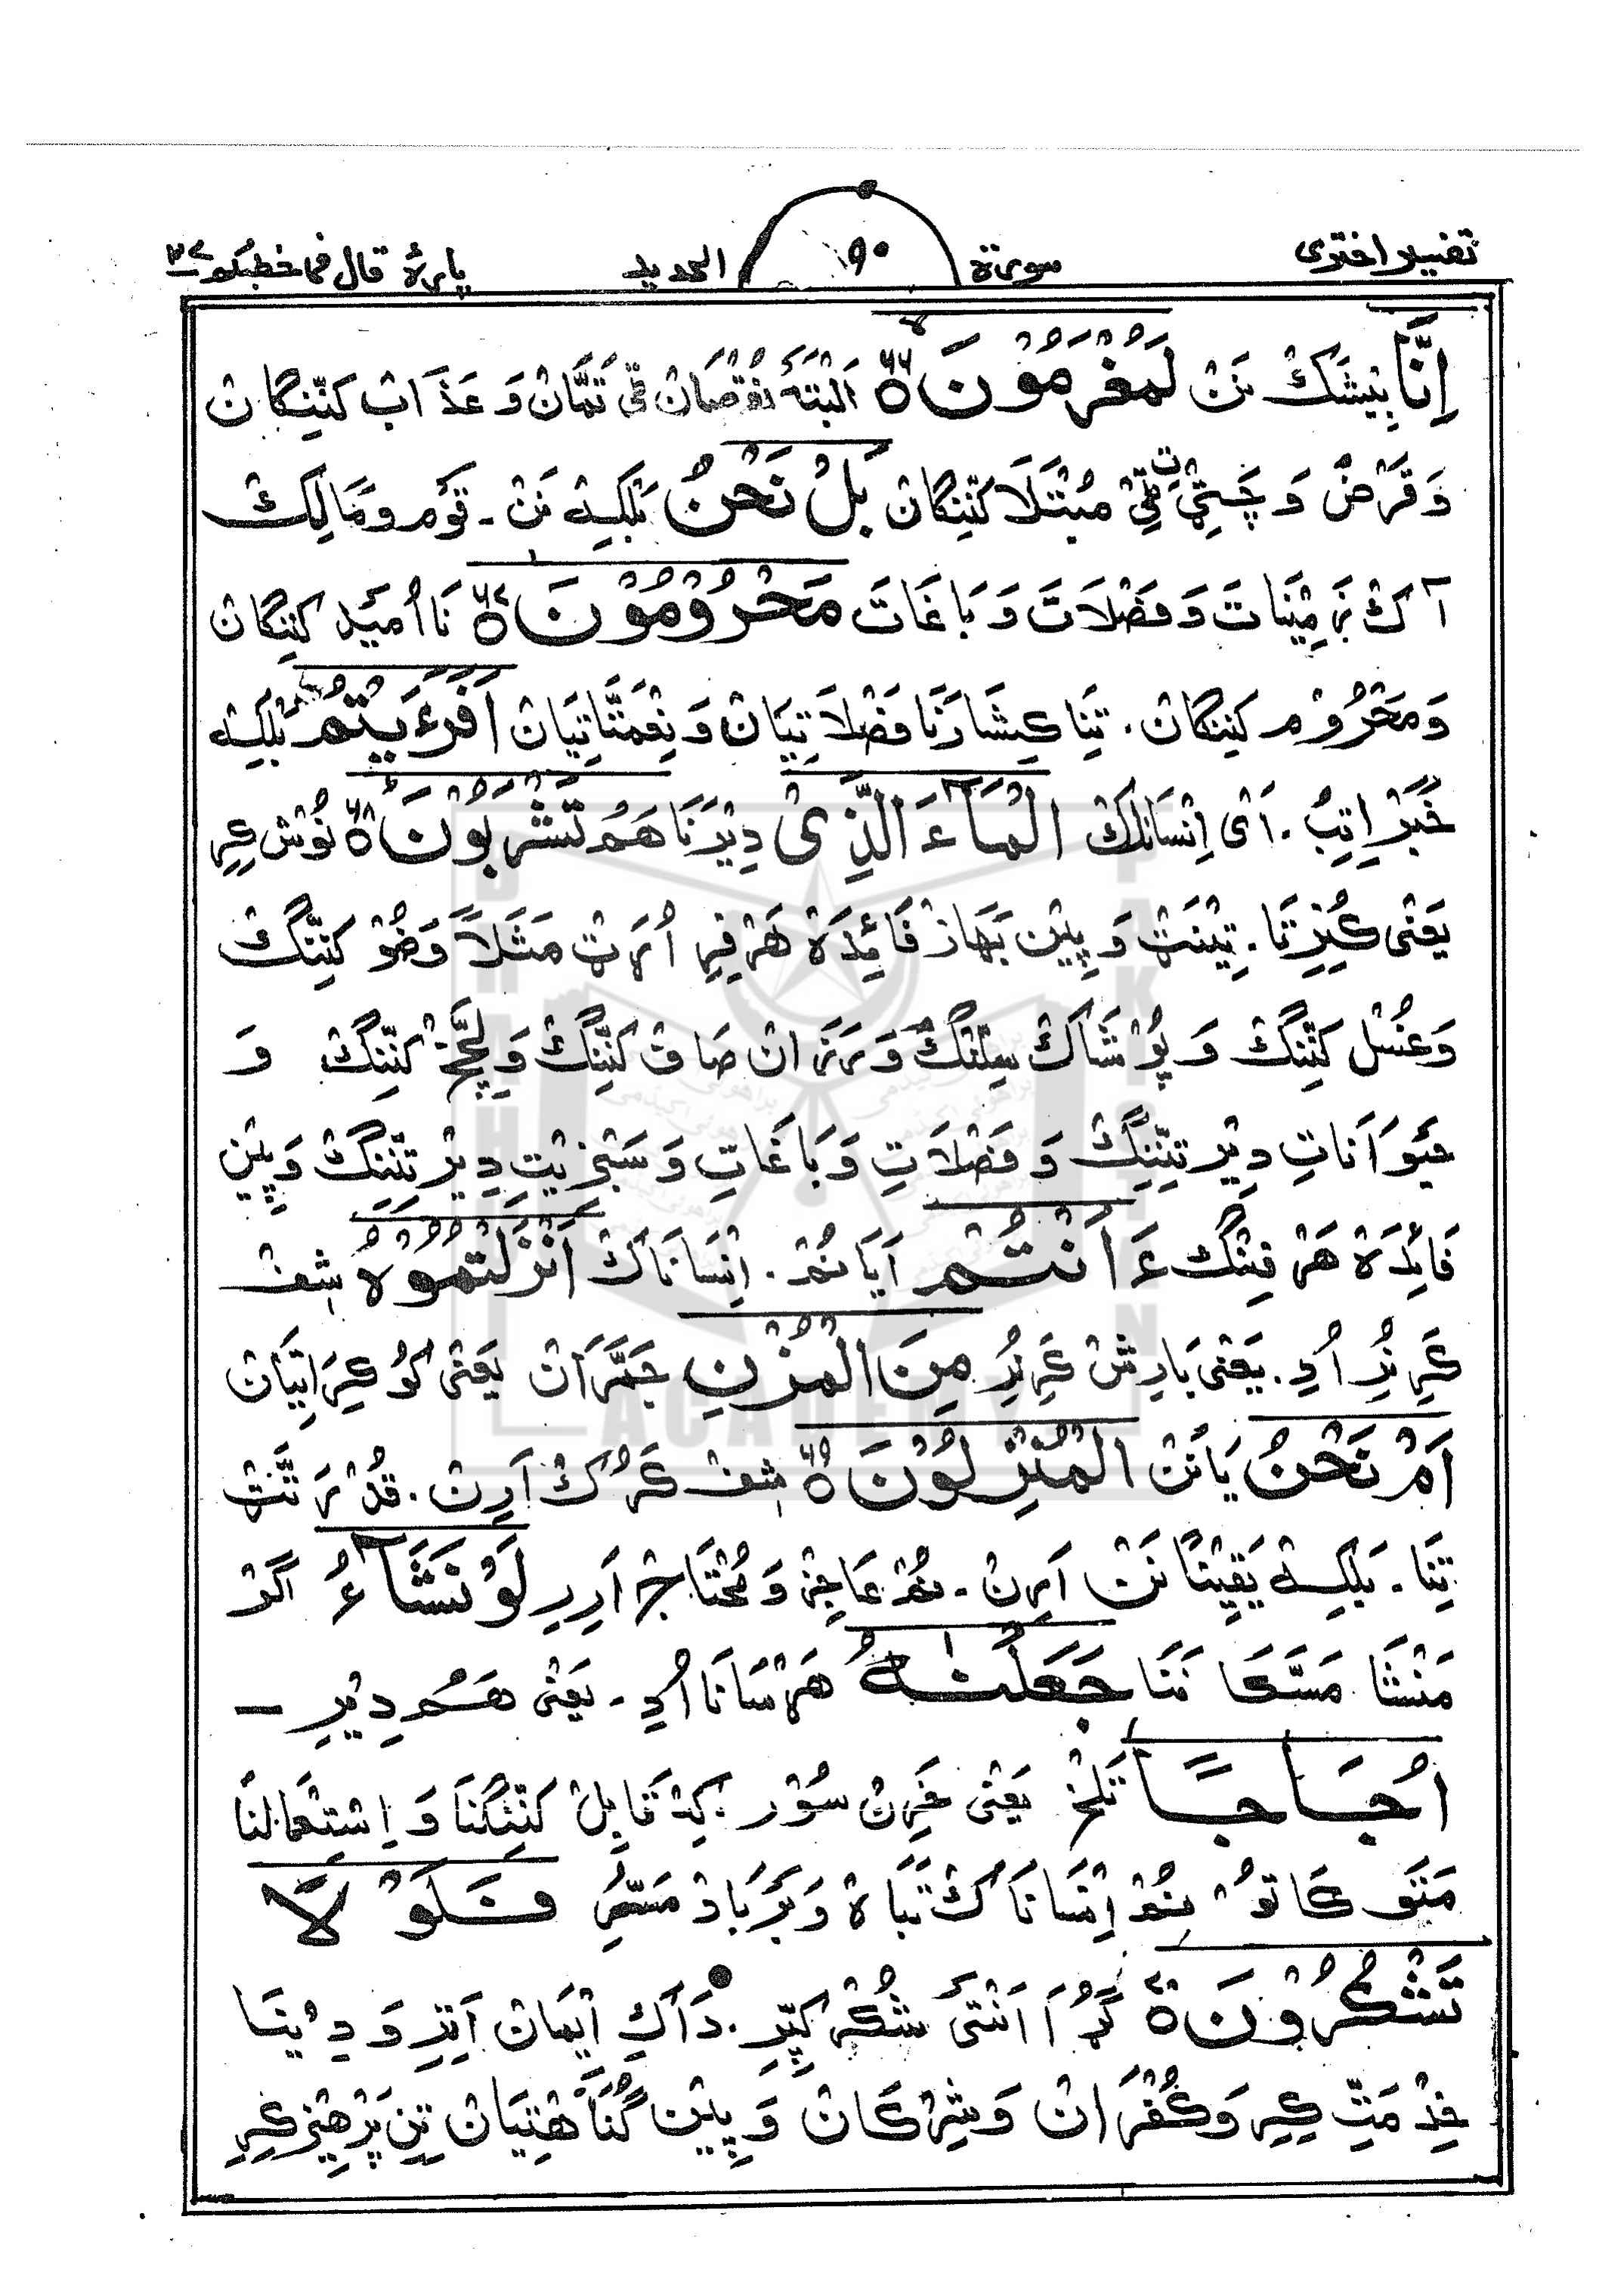 تفسیر اختری سورة ٩٠ الحدید پارۂ قال فما خطبکم ٢٧
اِنَّا بِیْشَکْ نَنْ لَمُغْرَمُوْنَ ۃ٦٦ اَلْبَتَہ نُقْصَان ٹی تَمَّانْ وَ عَذَابْ کَنِّنْگَانْ
وَ قَرْض وَ چَٹِّی ٹِی مُبْتَلَا کَنِّنْگَانْ بَلْ نَحْنُ بَلْکِہ نَنْ ۔ قَوْم وَمَالِکْ
آک زَمِیْنَاتَ وَ فَصْلَاتَ وَ بَاغَاتَ مَحْرُوْمُوْنَ ۃ٦٧ نَااُمَیْد کَنِنْگَانْ
وَ مَحْرُوْم کَنِنْگَانْ . تِنَا کِشَارْنَا فَصْلَاتِیَانْ وَ نِعْمَتَّاتِیَانْ اَفَرَءَیْتُمُ بَلْکِہ
خَبَرْ اِتِبُ . اَیْ اِنْسَانَاکْ الْمَآءَ الَّذِیْ دِیْرَنَا ھَمُ تَشْرَبُوْنَ ۃ٦٨ نُوْش کِرِ
یَعْنِیْ کُنِرِتَا . تِیْنَتْ وَ پِیْن بَھَاز فَائِدَہ ھَرْفِرِ اُرْتْ مَثَلاً وَضُوْ کَنِّنْگْ
وَ غُسْل کَنِّنْگْ وَ پُوْشَاکْ سِلِّنْگْ وَ رَزَانْ صَافْ کَنِّنْگْ وَ کَنِّنْگْ وَ
حَیْوَانَاتِ دِیْر تِنِّنِگْ وَ فَصْلَاتِ وَ بَاغَاتِ وَ سَبْزِیْتِ دِیْر تِنِّنِگْ وَ پِیْن
فَائِدَہ ھَرْفِنْگْ ءَاَنْتُمْ آیَا نُمْ . اِنْسَانَاکْ اَنْزَلْتُمُوْہُ شِفْ
کَرِنُرِ اُدِ . یَعْنِیْ بَارِش کَرِنُرِ مِنَ الْمُزْنِ جَمَّرَانْ یَعْنِیْ
اَمْ نَحْنُ یَا نَنْ الْمُنْزِلُوْنَ ۃ٦٩ شِفْ کَرُکْ آرِنْ . قُدْرَتَّتْ
تِنَا . بَلْکِہ یَقِیْنًا نَنْ اَرِنْ . نُمْ عَاجِزْ وَ مُحْتَاجْ اَرِرِ لَوْ نَشَآءُ اَگَرْ
مَنْشَا مَسَّکَا نَنَا جَعَلْنٰہُ ھَرْسَانَا اُدِ ۔ یَعْنِیْ ھَمُ دِیْرِ ۔
اُجَاجًا تَلْخْ یَعْنِیْ خَرِنْ سُوْر . کِہ قَابِلْ کَنِنْگْنَا وَ اِسْتِعْمَالْنَا
مَتَو کَاتَوْ نُمْ اِنْسَانَاکْ تَبَاہ وَ بَرْبَادْ مَسُّرِ فَلَوْ لَا
تَشْکُرُوْنَ ۃ٧٠ گُرَا اَنْتَئِ شُکْر کَپِّرِ . دَاکِہ اِیْمَانْ اَتِرِ وَ دِیْنَا
خِدْمَتِّ کِرِ وَ کُفْرَانْ وَ شِرْکَانْ وَ پِیْن گُنَاھَتِیَانْ تِیْن پَرْھِیْز کِرِ